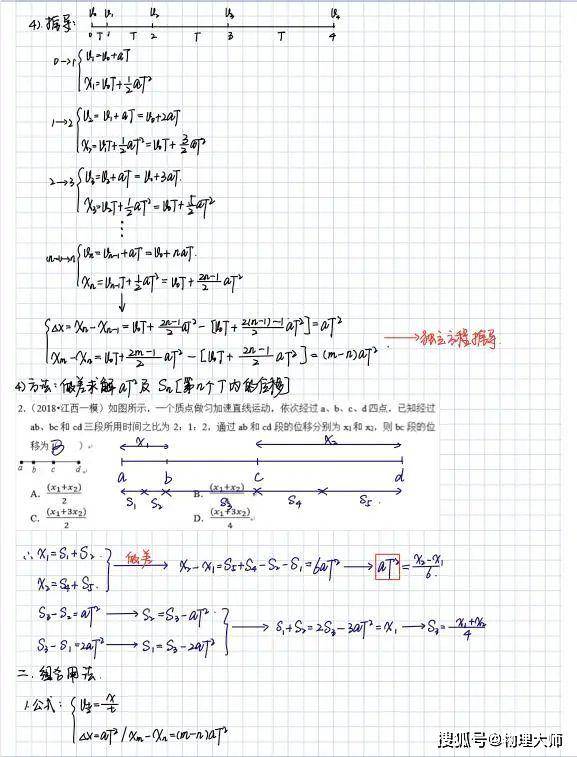 4).推导: V₀ V₁ V₂ V₃ V₄
0 T 1 T 2 T 3 T 4
0→1 { V₁=V₀+aT
X₁=V₀T+½aT²
1→2 { V₂=V₁+aT=V₀+2aT
X₂=V₁T+½aT²=V₀T+3/2aT²
2→3 { V₃=V₂+aT=V₀+3aT.
X₃=V₂T+½aT²=V₀T+5/2aT²
⋮
n-1→n { Vₙ=Vₙ₋₁+aT=V₀+naT.
Xₙ=Vₙ₋₁T+½aT²=V₀T+(2n-1)/2 aT²
↓
{ Δx=Xₙ-Xₙ₋₁=V₀T+(2n-1)/2 aT²-[V₀T+(2(n-1)-1)/2 aT²]=aT²
Xm-Xₙ=V₀T+(2m-1)/2 aT²-[V₀T+(2n-1)/2 aT²]=(m-n)aT². →独立方程推导
4)方法:做差求解aT²及Sₙ[第n个T内的位移]
2.(2018•江西一模)如图所示,一个质点做匀加速直线运动,依次经过a、b、c、d四点,已知经过
ab、bc和cd三段所用时间之比为2:1:2,通过ab和cd段的位移分别为x₁和x₂,则bc段的位
移为( B )
X₁ X₂
a b c d
a b c d
S₁ S₂ S₃ S₄ S₅
A. (x₁+x₂)/2 B. (x₁+x₂)/4
C. (x₁+3x₂)/2 D. (x₁+3x₂)/4
∴ X₁=S₁+S₂
X₂=S₄+S₅ } 做差→ X₂-X₁=S₅+S₄-S₂-S₁=6aT² → aT²=(X₂-X₁)/6.
S₃-S₂=aT² → S₂=S₃-aT²
S₃-S₁=2aT² → S₁=S₃-2aT² } → S₁+S₂=2S₃-3aT²=X₁ → S₃=(X₁+X₂)/4
二.组合用法.
1.公式: { V=x/t
Δx=aT²/Xm-Xₙ=(m-n)aT²
搜狐号@物理大师